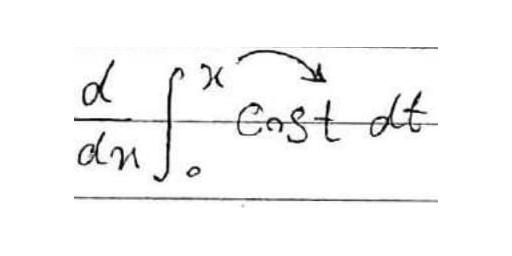 d/dx ∫₀ˣ Cos t dt